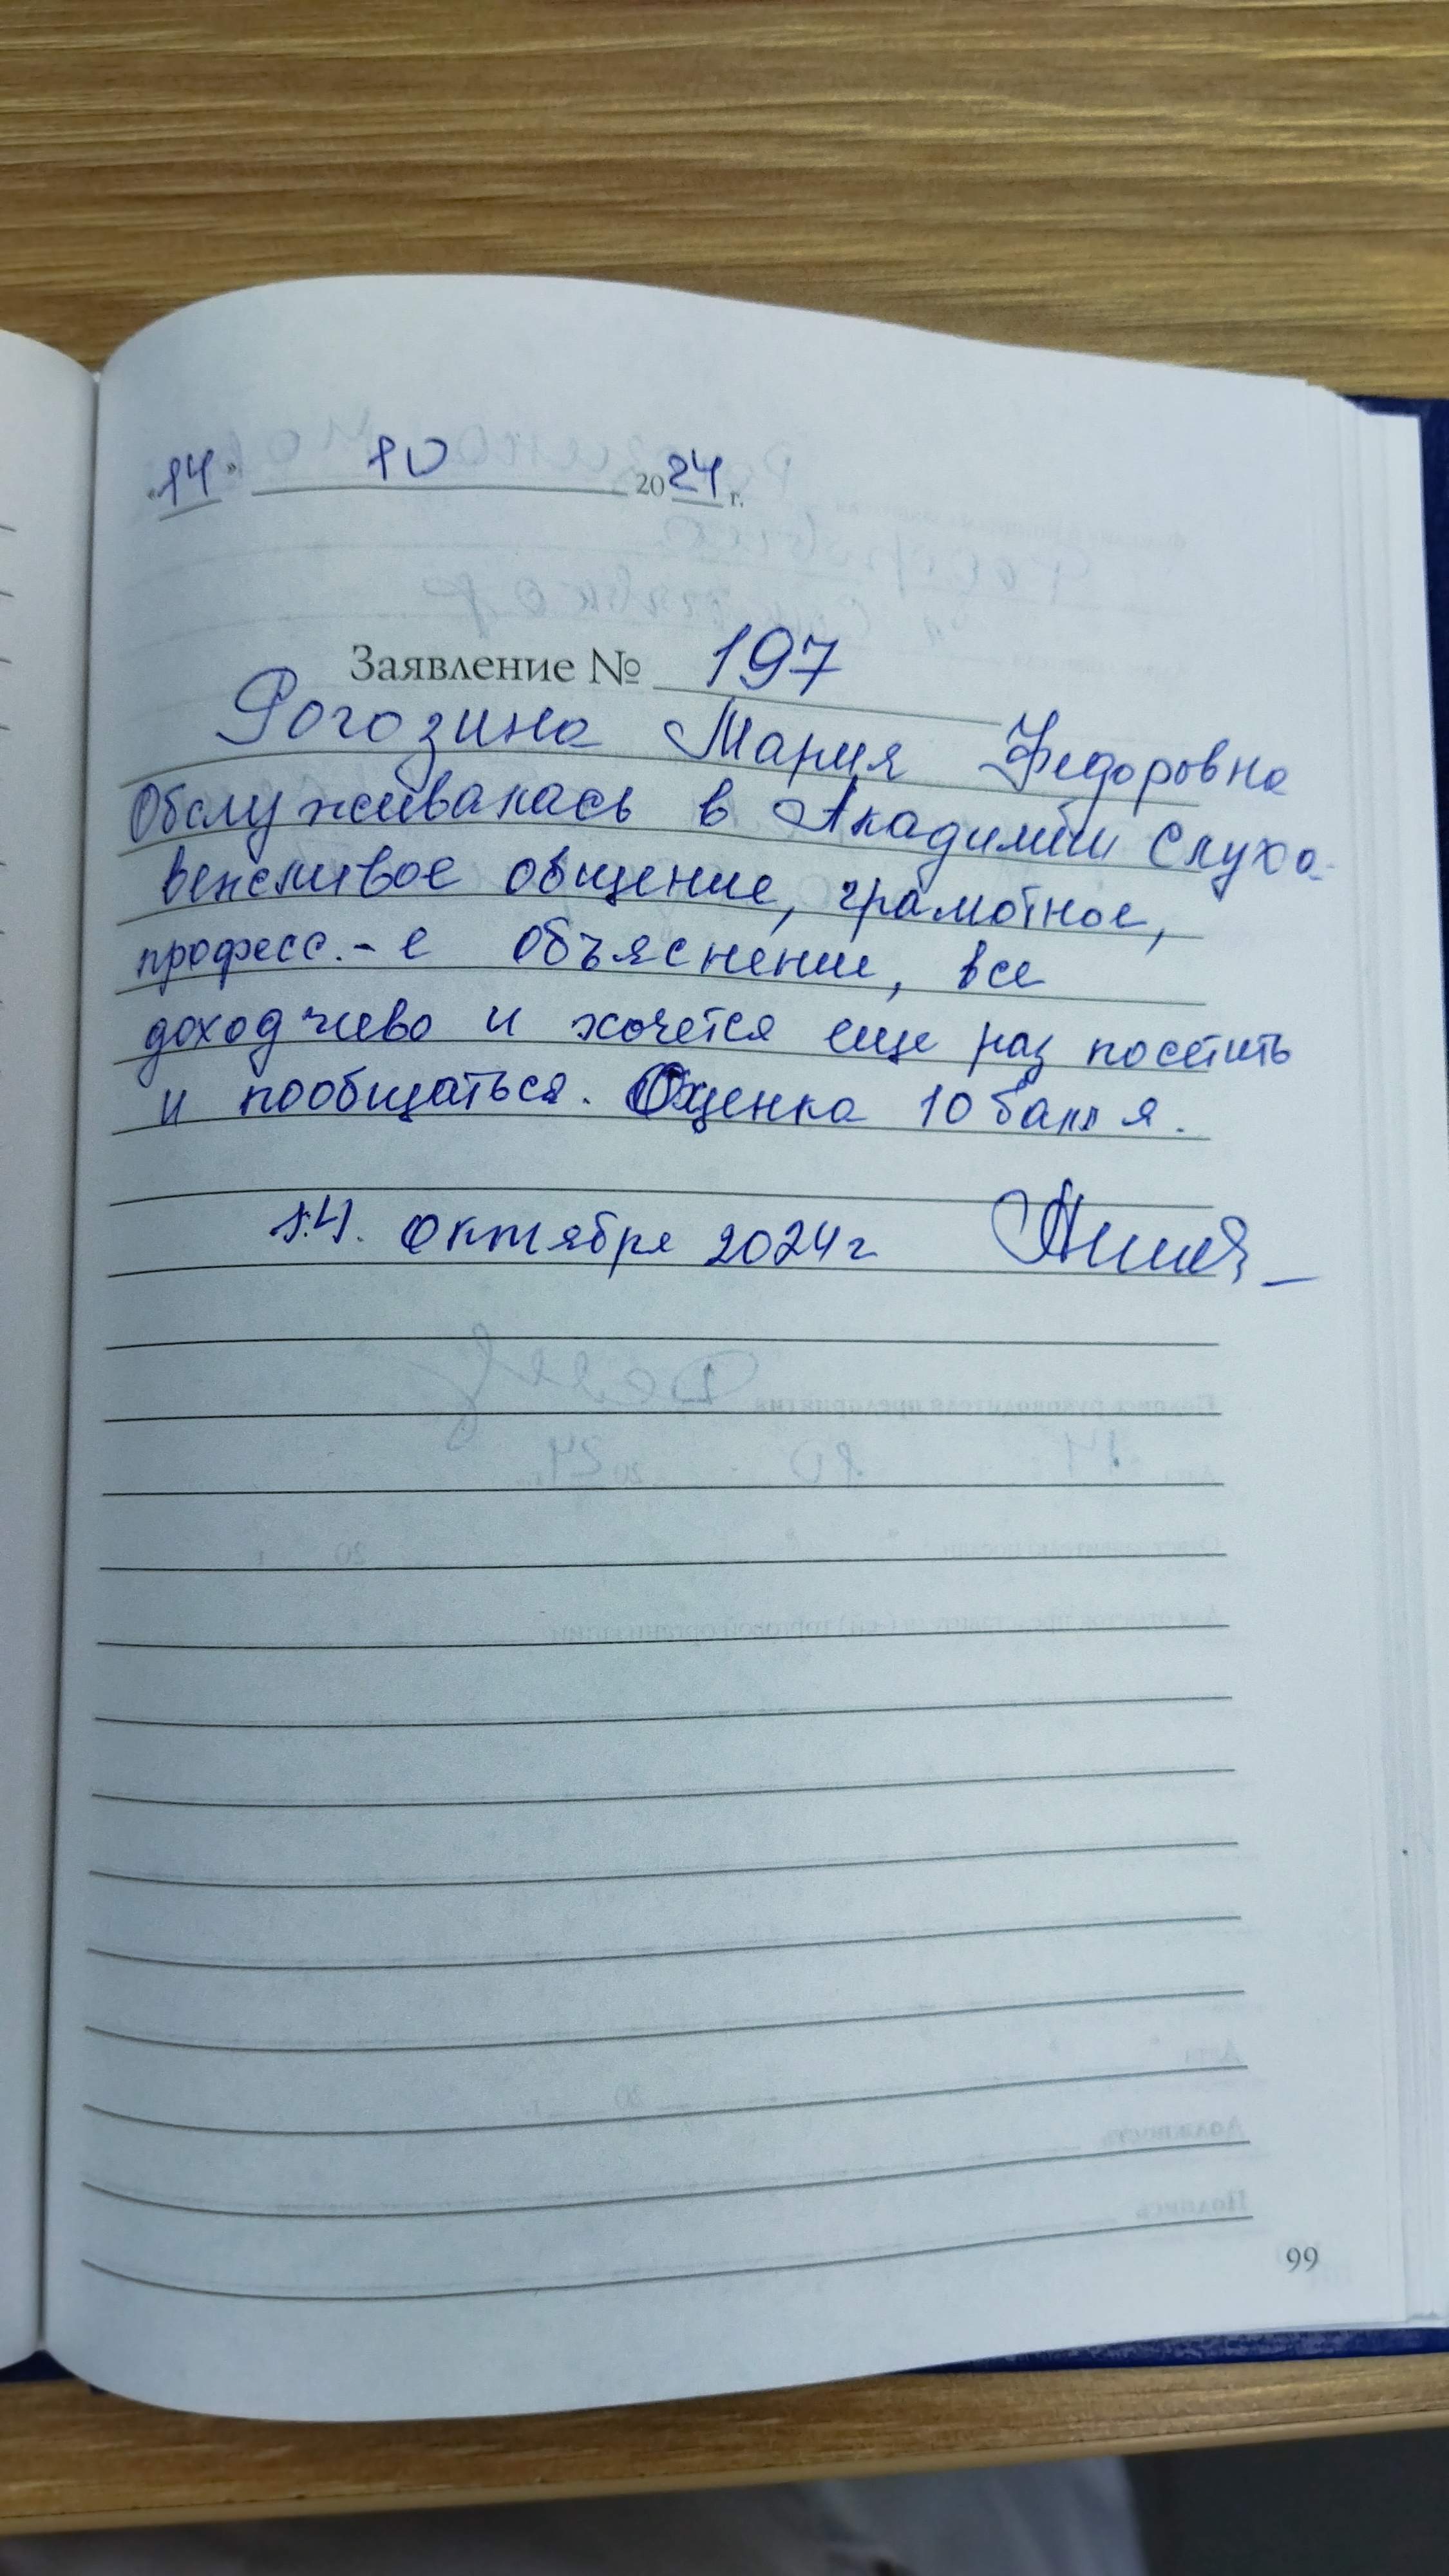 «14» 10 2024 г.
Заявление № 197
Рогозина Мария Федоровна
Обслуживалась в Академии Слуха.
вежливое общение, грамотное,
професс.-е объяснение, все
доходчиво и хочется еще раз посетить
и пообщаться. Оценка 10 балля.
14. октября 2024 г
99